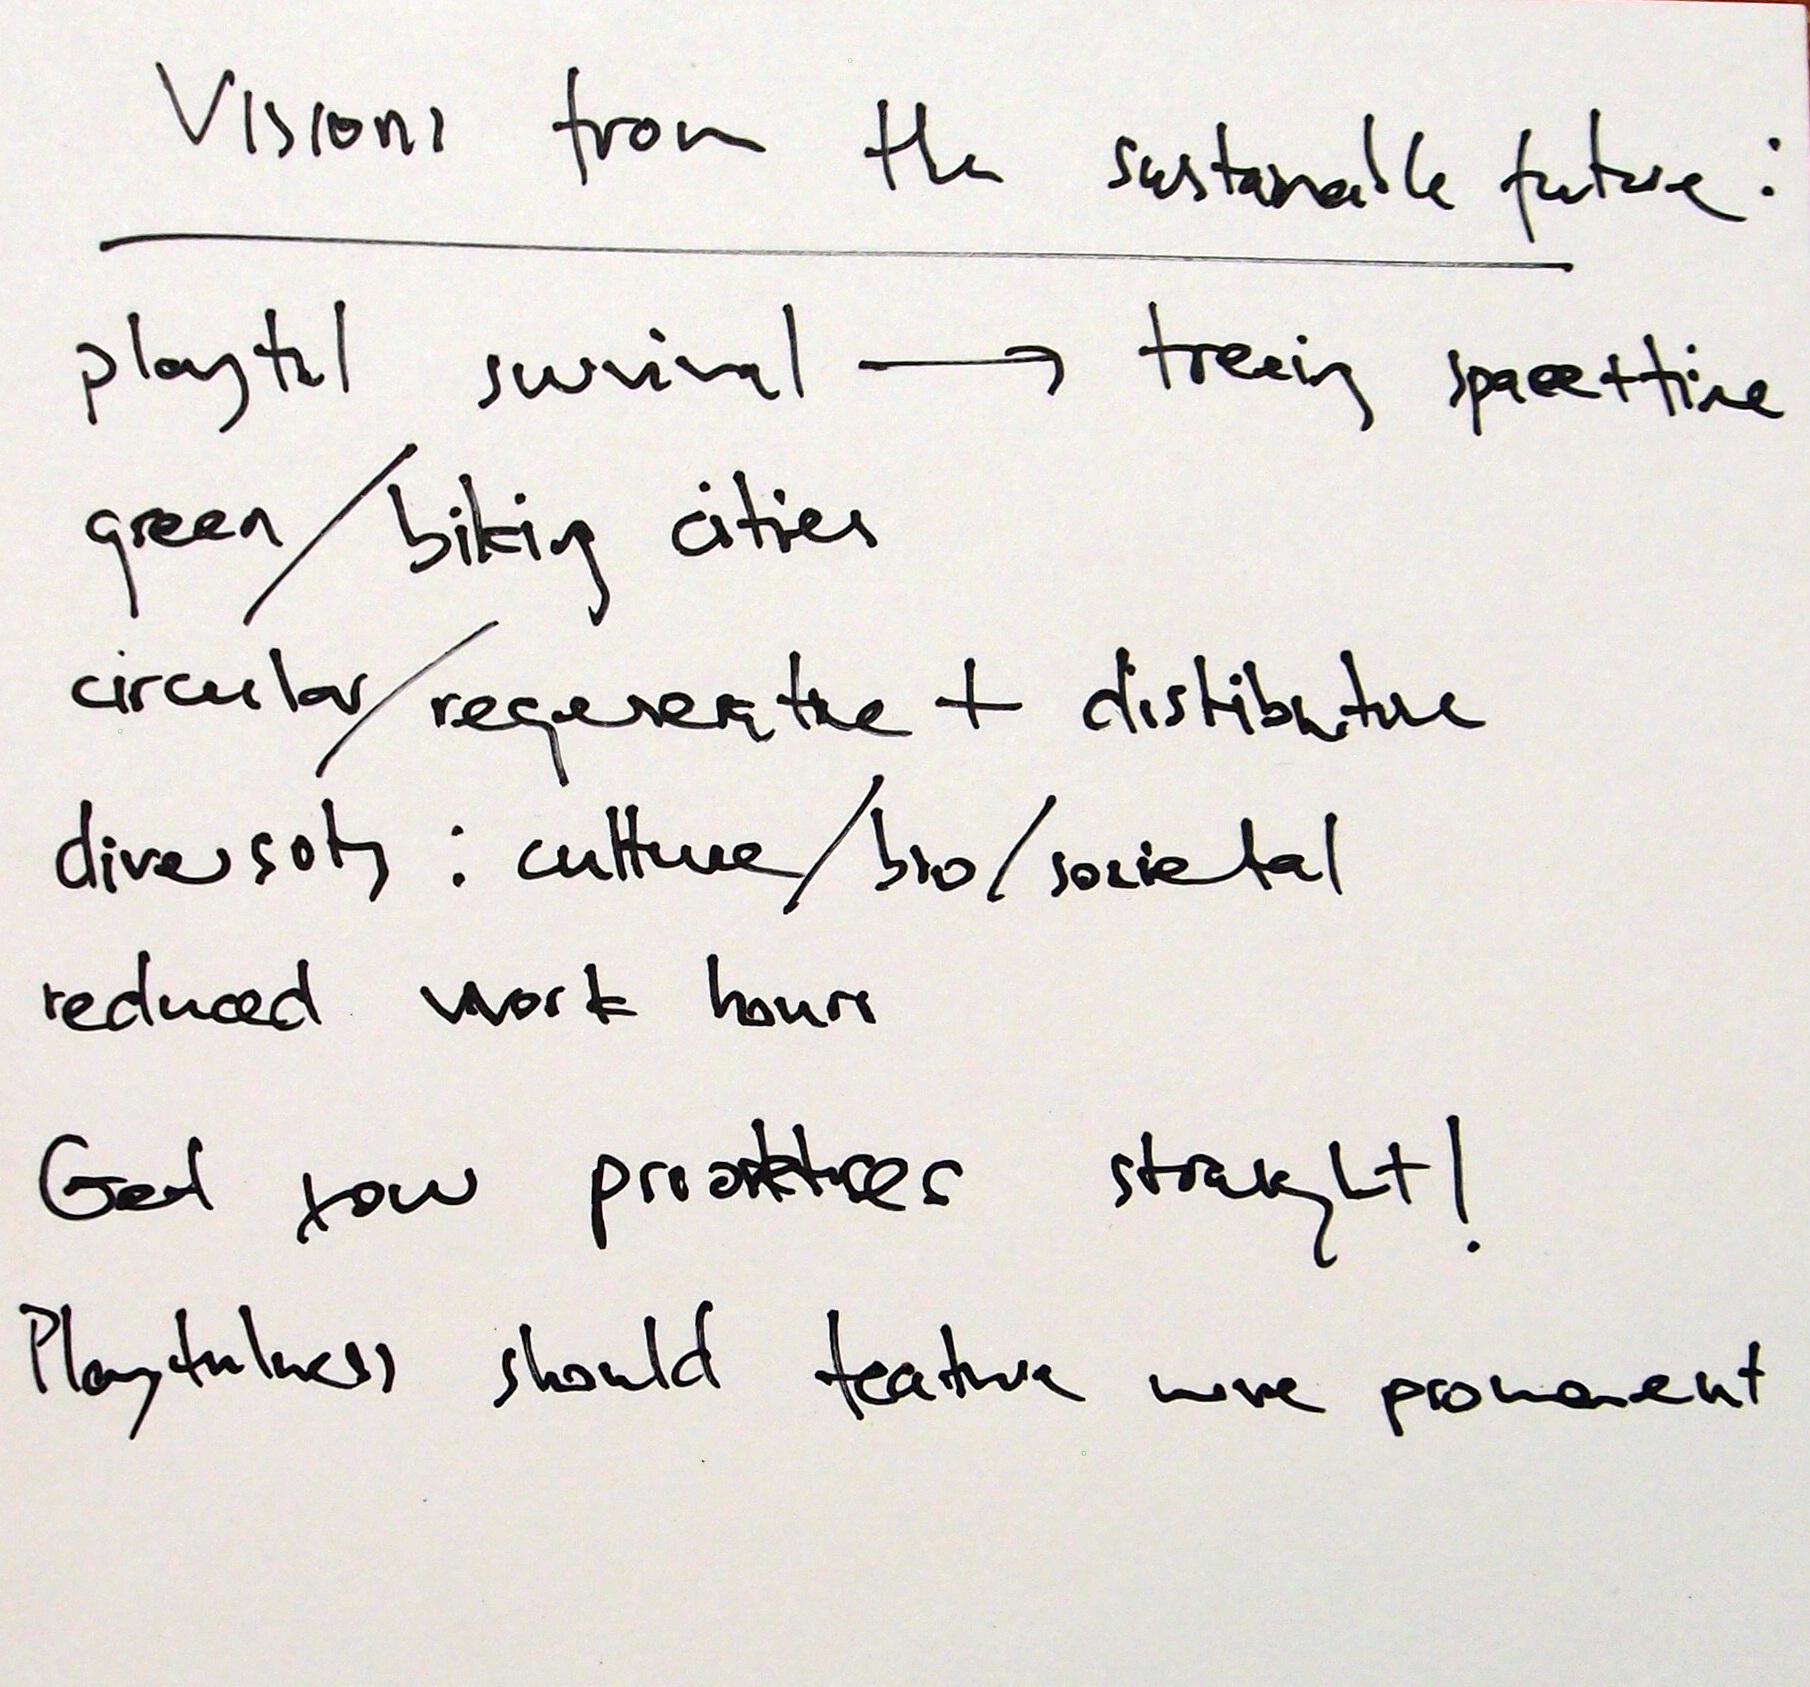 Visions from the sustainable future:
playful survival → freeing space + time
green / biking cities
circular / regenerative + distributive
diversoty : culture / bio / societal
reduced work hours
Get your priorities straight!
Playfulness should feature more prominent